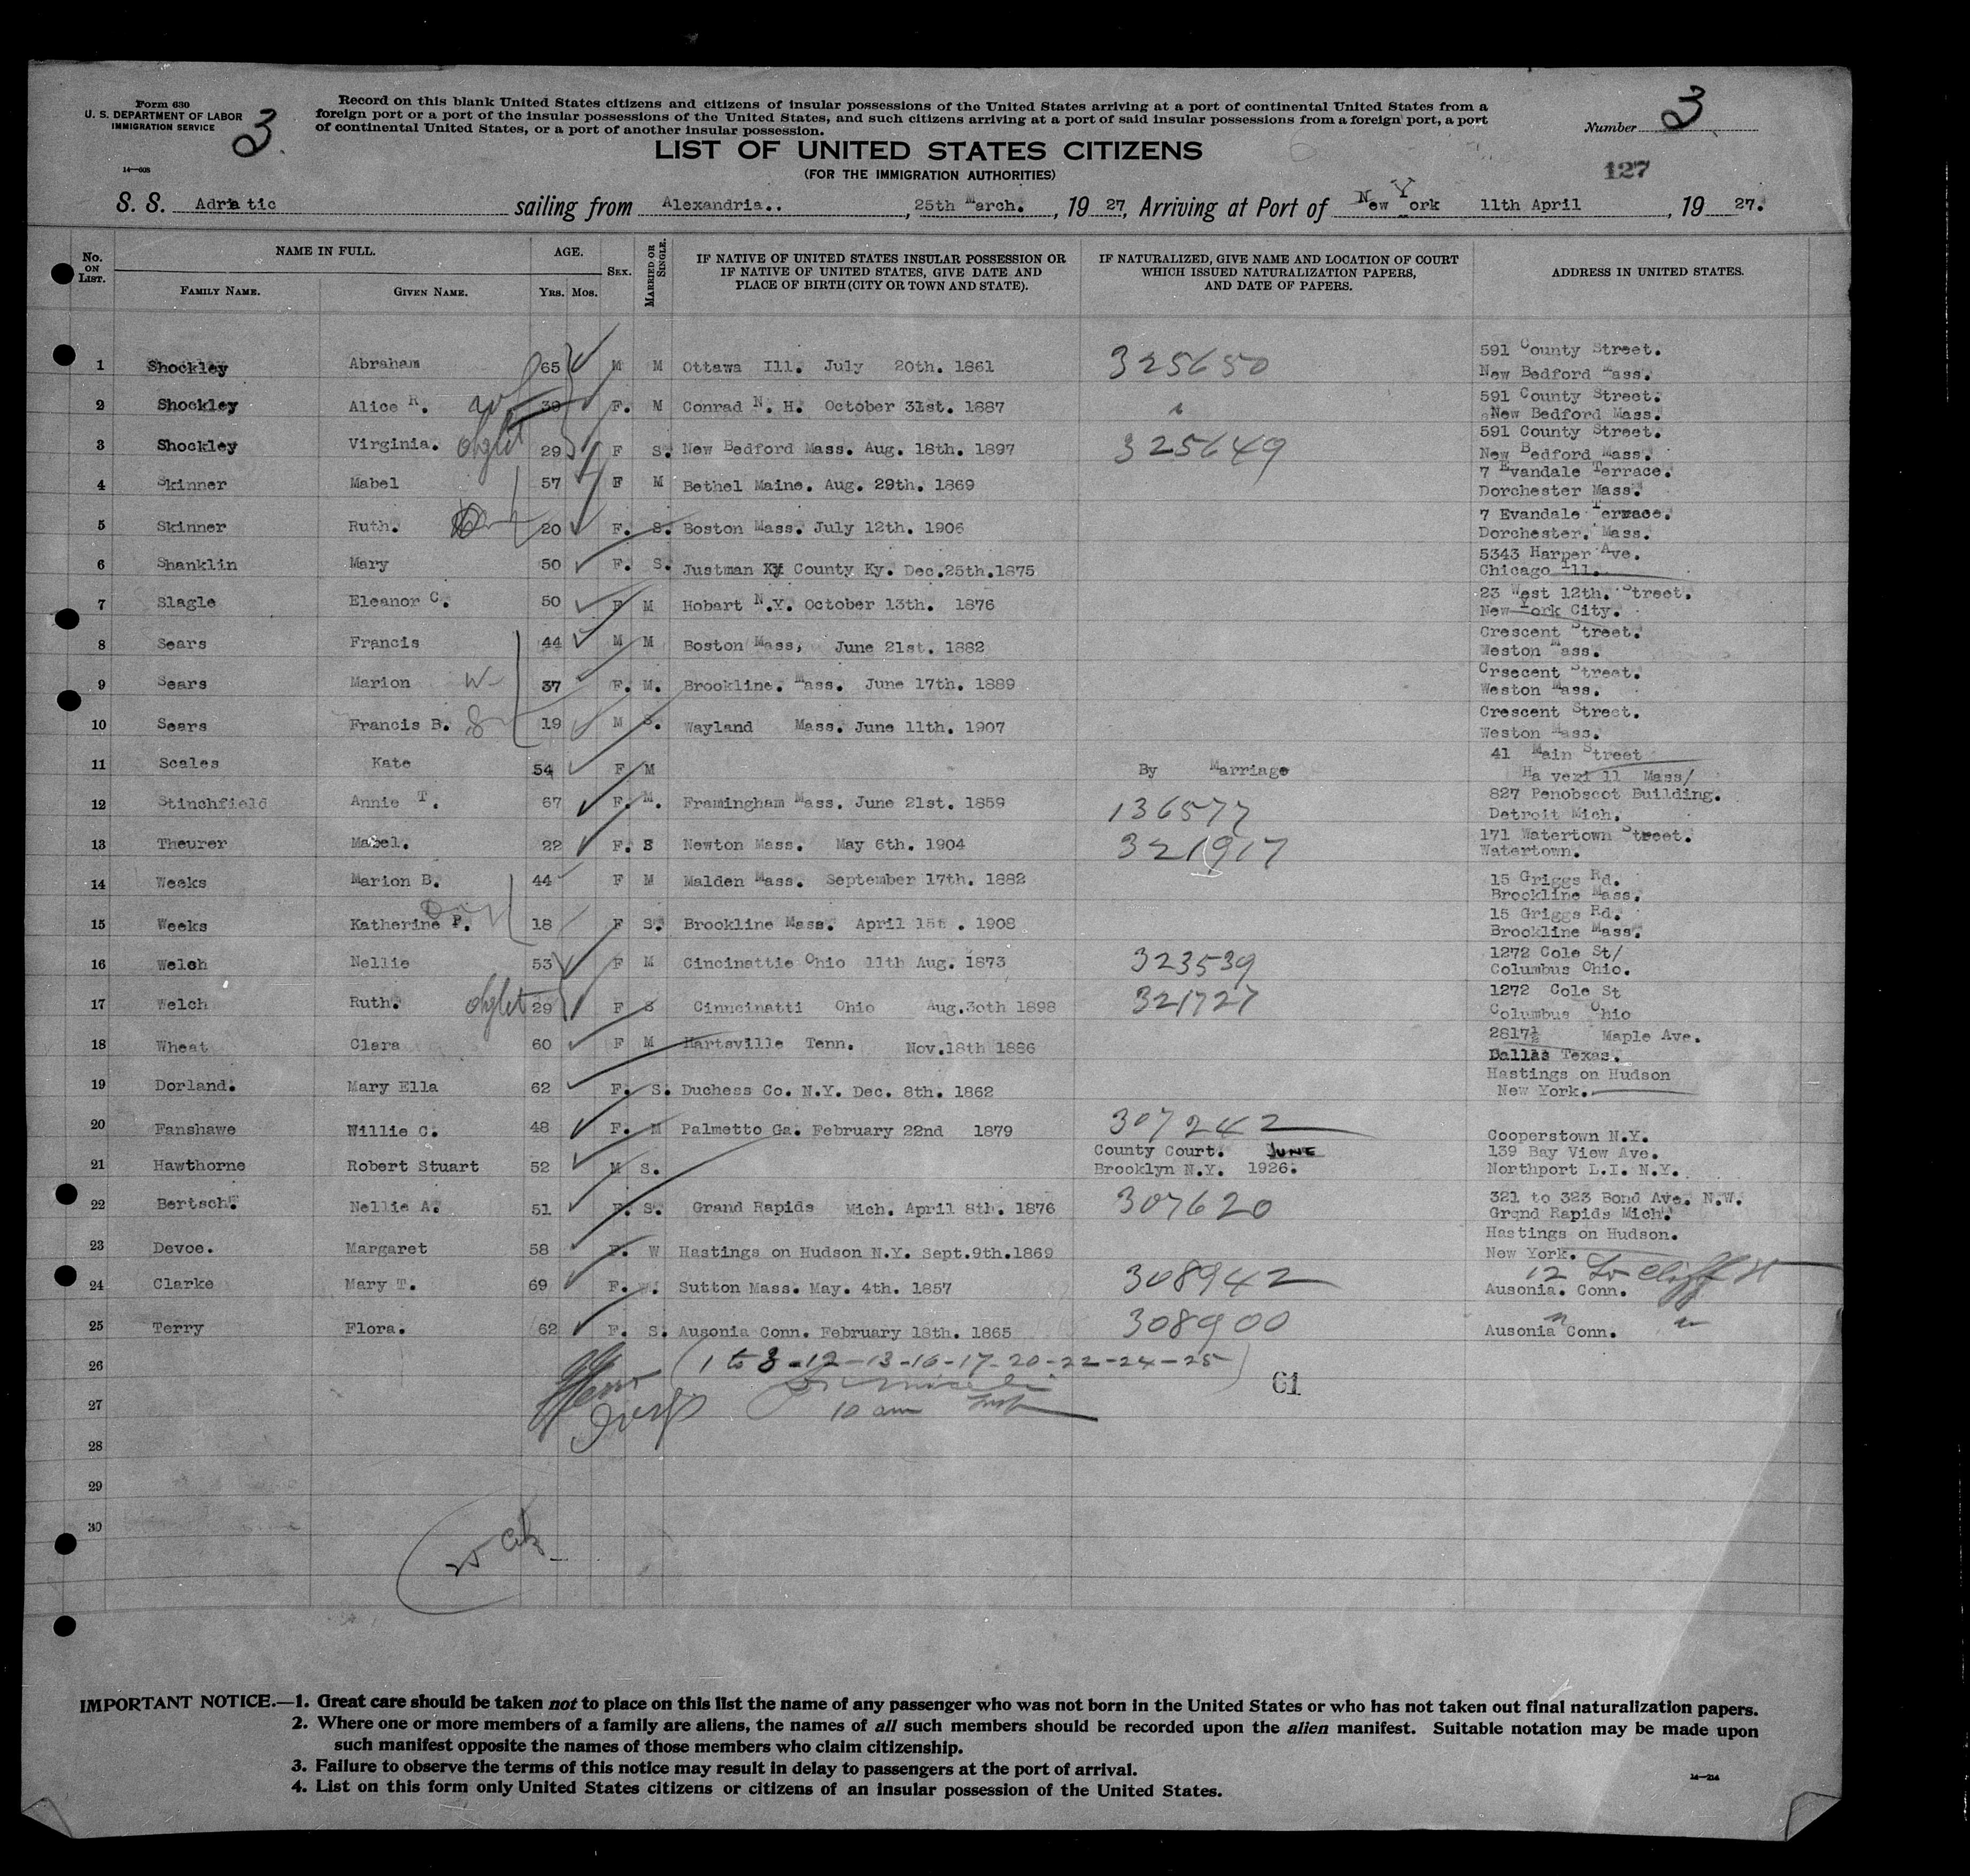 Form 630
U. S. DEPARTMENT OF LABOR
IMMIGRATION SERVICE
14—608
3
Record on this blank United States citizens and citizens of insular possessions of the United States arriving at a port of continental United States from a
foreign port or a port of the insular possessions of the United States, and such citizens arriving at a port of said insular possessions from a foreign port, a port
of continental United States, or a port of another insular possession.
Number 3
LIST OF UNITED STATES CITIZENS
(FOR THE IMMIGRATION AUTHORITIES)
127
S. S. Adriatic sailing from Alexandria.. , 25th March. , 19 27, Arriving at Port of New York 11th April , 19 27.
No. ON LIST. NAME IN FULL. AGE. SEX. MARRIED OR SINGLE. IF NATIVE OF UNITED STATES INSULAR POSSESSION OR IF NATIVE OF UNITED STATES, GIVE DATE AND PLACE OF BIRTH (CITY OR TOWN AND STATE). IF NATURALIZED, GIVE NAME AND LOCATION OF COURT WHICH ISSUED NATURALIZATION PAPERS, AND DATE OF PAPERS. ADDRESS IN UNITED STATES.
FAMILY NAME. GIVEN NAME. YRS. MOS.
1 Shockley Abraham 65 M M Ottawa Ill. July 20th. 1861 325650 591 County Street.
New Bedford Mass.
2 Shockley Alice R. 39 F. M Conrad N. H. October 31st. 1887 591 County Street.
New Bedford Mass.
3 Shockley Virginia. 29 F S. New Bedford Mass. Aug. 18th. 1897 325649 591 County Street.
New Bedford Mass.
4 Skinner Mabel 57 F M Bethel Maine. Aug. 29th. 1869 7 Evandale Terrace.
Dorchester Mass.
5 Skinner Ruth. 20 F. S. Boston Mass. July 12th. 1906 7 Evandale Terrace.
Dorchester. Mass.
6 Shanklin Mary 50 F. S. Justman County Ky. Dec.25th.1875 5343 Harper Ave.
Chicago Ill.
7 Slagle Eleanor C. 50 F M Hobart N.Y. October 13th. 1876 23 West 12th. Street.
New York City.
8 Sears Francis 44 M M Boston Mass, June 21st. 1882 Crescent Street.
Weston Mass.
9 Sears Marion W 37 F. M. Brookline. Mass. June 17th. 1889 Crsecent Street.
Weston Mass.
10 Sears Francis B. S 19 M S. Wayland Mass. June 11th. 1907 Crescent Street.
Weston Mass.
11 Scales Kate 54 F M By Marriage 41 Main Street
Haverill Mass/
12 Stinchfield Annie T. 67 F. M. Framingham Mass. June 21st. 1859 136577 827 Penobscot Building.
Detroit Mich.
13 Theurer Mabel. 22 F. S Newton Mass. May 6th. 1904 321917 171 Watertown Street.
Watertown.
14 Weeks Marion B. 44 F M Malden Mass. September 17th. 1882 15 Griggs Rd.
Brookline Mass.
15 Weeks Katherine P. 18 F S. Brookline Mass. April 15t . 1908 15 Griggs Rd.
Brookline Mass.
16 Welch Nellie 53 F M Cincinattie Ohio 11th Aug. 1873 323539 1272 Cole St/
Columbus Ohio.
17 Welch Ruth. 29 F S Cinncinatti Ohio Aug.30th 1898 321727 1272 Cole St
Columbus Ohio
18 Wheat Clara 60 F M Hartsville Tenn. Nov.18th 1886 2817½ Maple Ave.
Dallas Texas.
19 Dorland. Mary Ella 62 F. S. Duchess Co. N.Y. Dec. 8th. 1862 Hastings on Hudson
New York.
20 Fanshawe Willie C. 48 F. M Palmetto Ga. February 22nd 1879 307242 Cooperstown N.Y.
21 Hawthorne Robert Stuart 52 M S. County Court. JUNE 139 Bay View Ave.
Brooklyn N.Y. 1926. Northport L.I. N.Y.
22 Bertsch. Nellie A. 51 F. S. Grand Rapids Mich. April 8th. 1876 307620 321 to 323 Bond Ave. N.W.
Grand Rapids Mich.
23 Devoe. Margaret 58 F. W Hastings on Hudson N.Y. Sept.9th.1869 Hastings on Hudson.
New York.
24 Clarke Mary T. 69 F. W. Sutton Mass. May. 4th. 1857 308942 12 Cliff St
Ausonia. Conn.
25 Terry Flora. 62 F. S. Ausonia Conn. February 18th. 1865 308900 Ausonia Conn.
26 (1 to 3-12-13-16-17-20-22-24-25)
61
27 10 am
28
29
30
IMPORTANT NOTICE.—1. Great care should be taken not to place on this list the name of any passenger who was not born in the United States or who has not taken out final naturalization papers.
2. Where one or more members of a family are aliens, the names of all such members should be recorded upon the alien manifest. Suitable notation may be made upon
such manifest opposite the names of those members who claim citizenship.
3. Failure to observe the terms of this notice may result in delay to passengers at the port of arrival.
4. List on this form only United States citizens or citizens of an insular possession of the United States.
14—214